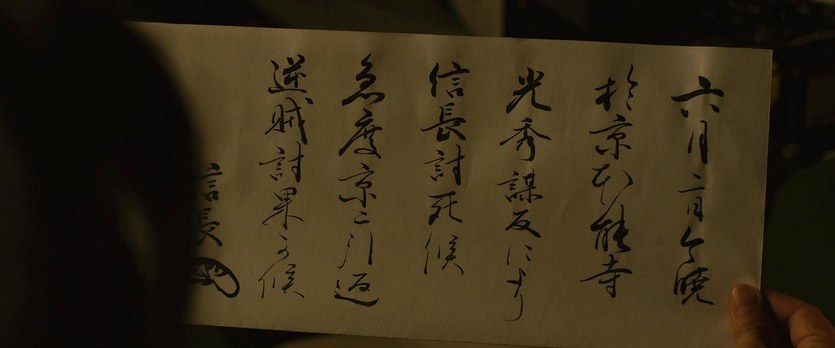 六月二日今暁
於京ひ能寺
光秀謀反により
信長討死候
急度京ニ引返
逆賊討果可候
信長